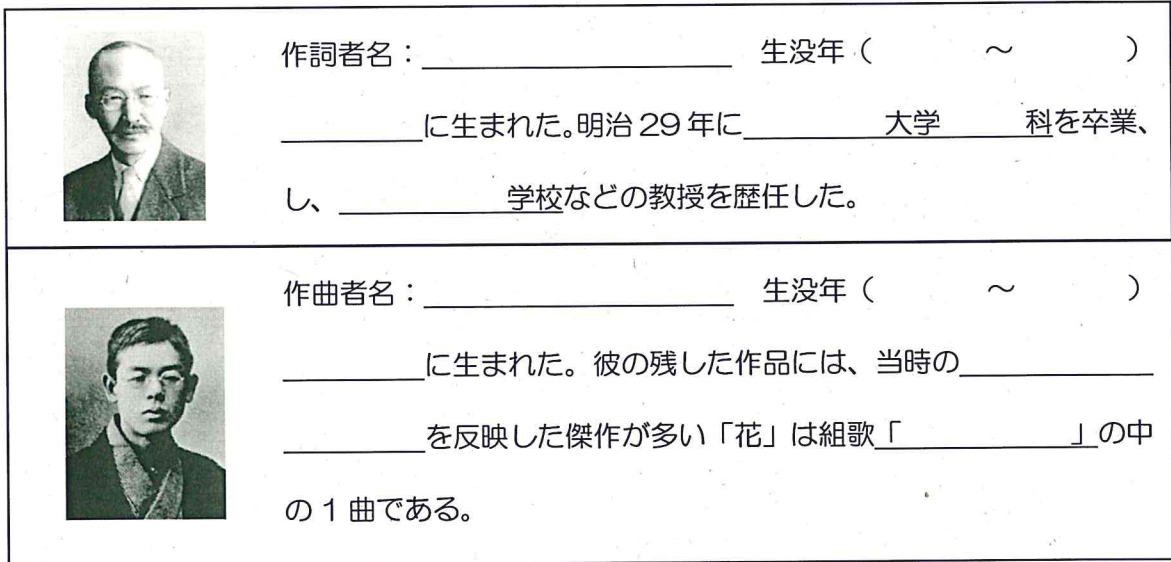 作詞者名：＿＿＿＿＿＿＿＿＿＿　生没年（　　　　～　　　　）
＿＿＿＿＿に生まれた。明治29年に＿＿＿＿＿大学＿＿＿科を卒業、
し、＿＿＿＿＿＿学校などの教授を歴任した。
作曲者名：＿＿＿＿＿＿＿＿＿＿　生没年（　　　　～　　　　）
＿＿＿＿＿に生まれた。彼の残した作品には、当時の＿＿＿＿＿＿＿
＿＿＿＿＿を反映した傑作が多い「花」は組歌「＿＿＿＿＿＿」の中
の1曲である。